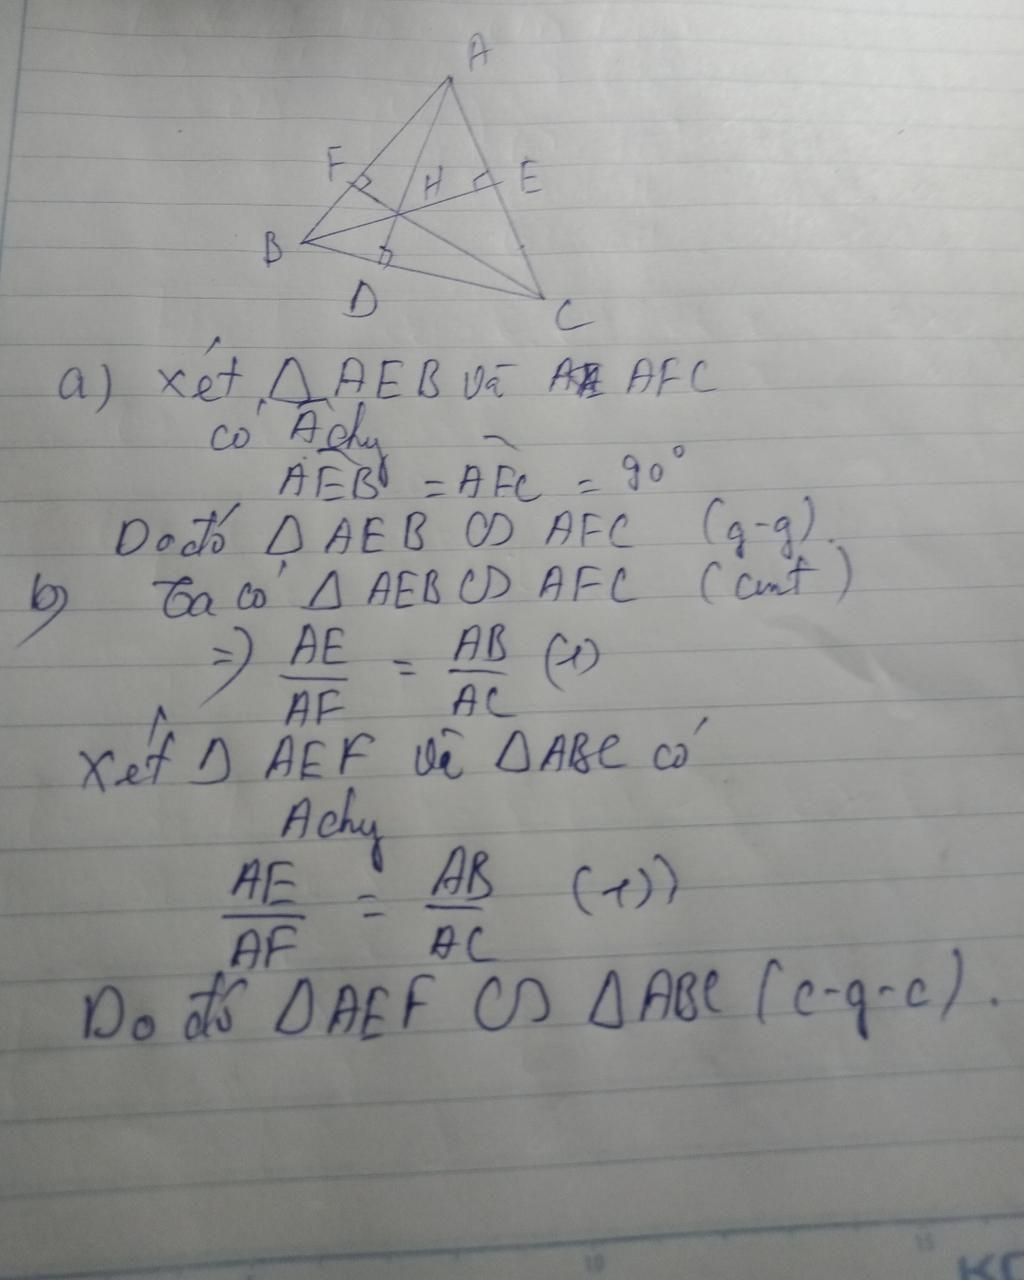 A
F
H
E
B
D
C
a) Xét Δ AEB và AFC
có Â chy
AEB = AFC = 90°
Do đó Δ AEB ∽ AFC (g-g).
b) Ta có Δ AEB ∽ AFC (cmt)
=> AE/AF = AB/AC (1)
Xét Δ AEF và ΔABC có
A chy
AE/AF = AB/AC (1))
Do đó ΔAEF ∽ ΔABC (c-g-c).
10
15